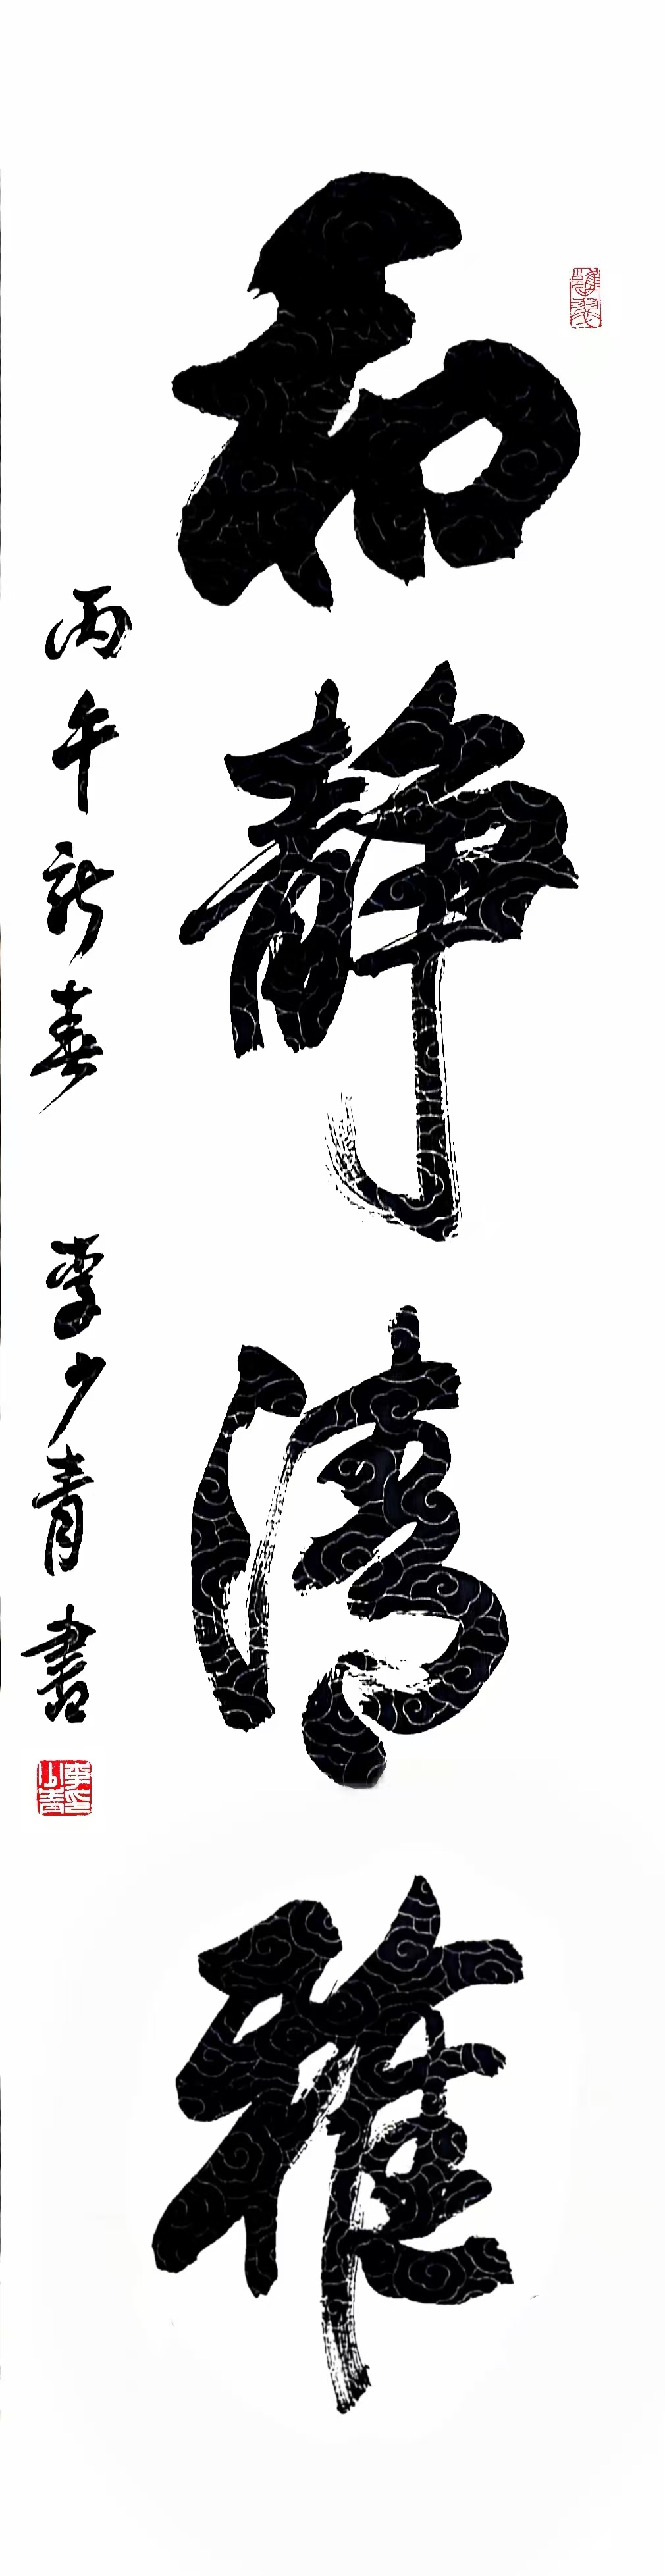 和静清雅
丙午新春 李少青書
李少青印